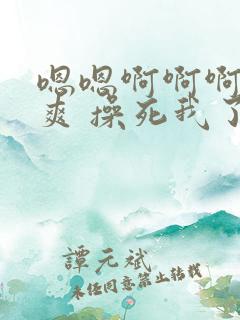 嗯嗯啊啊啊
爽 操死我了
譚元斌
未经同意禁止转载